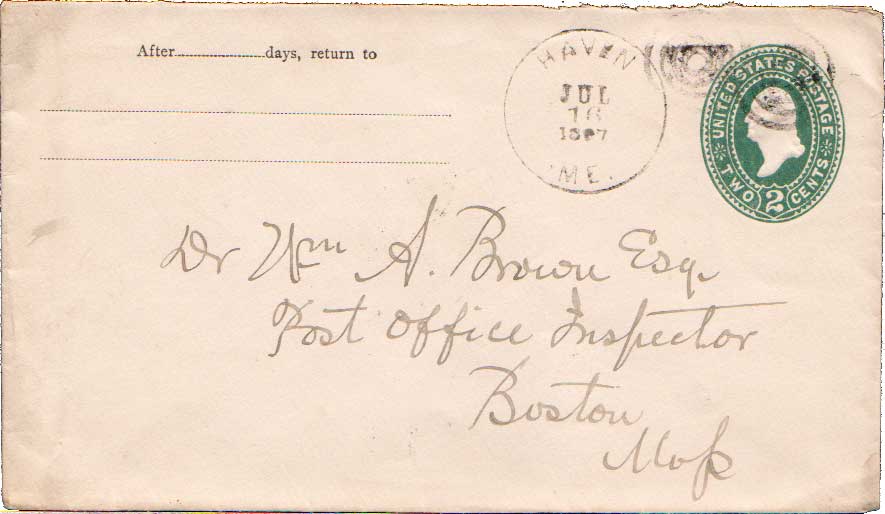 After ........ days, return to
HAVEN
JUL
16
1897
ME.
UNITED STATES POSTAGE
TWO 2 CENTS
Dr Wm A. Brown Esq.
Post Office Inspector
Boston
Mass